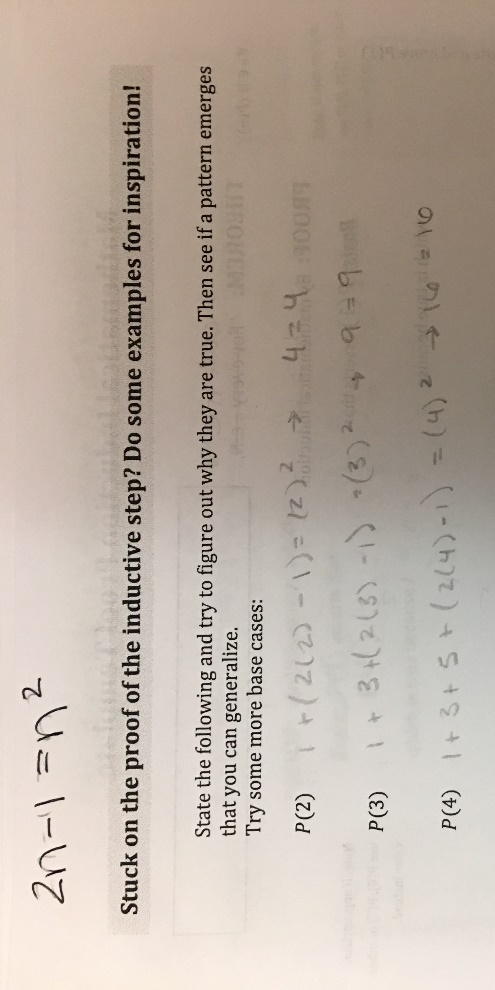 2n-1 = n²
Stuck on the proof of the inductive step? Do some examples for inspiration!
State the following and try to figure out why they are true. Then see if a pattern emerges
that you can generalize.
Try some more base cases:
P(2) 1 + (2(2) - 1) = (2)² → 4 = 4
P(3) 1 + 3 + (2(3) - 1) = (3)² → 9 = 9
P(4) 1 + 3 + 5 + (2(4) - 1) = (4)² → 16 = 16